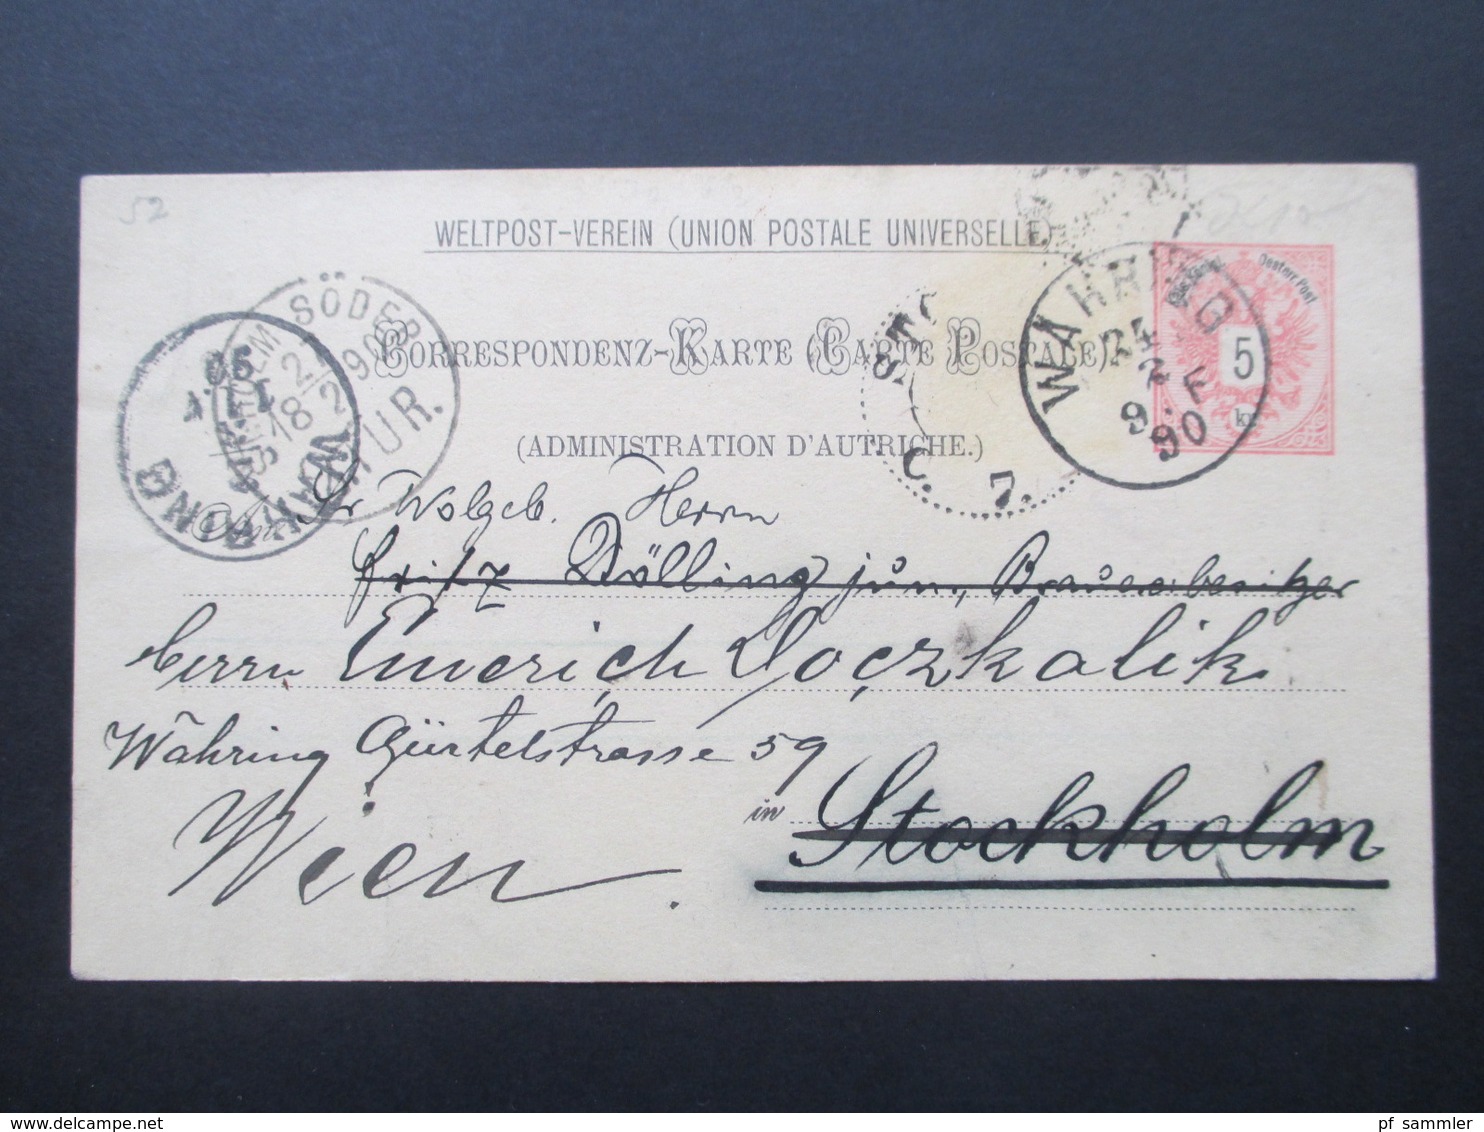 52
WELTPOST-VEREIN (UNION POSTALE UNIVERSELLE)
Oesterr. Post
5
kr.
WÄHRING
24
2
9 F
90
STOCKHOLM SÖDER
18/2
2 90
TUR.
CORRESPONDENZ-KARTE (CARTE POSTALE)
C. 7.
WÄHRING
90
(ADMINISTRATION D'AUTRICHE.)
Wolgeb. Herrn
Fritz Dölling jun., Brauereibesitzer
Herrn Emerich Doczkalik
Währing Gürtelstrasse 59
in Stockholm
Wien.
www.delcampe.net
pf_sammler